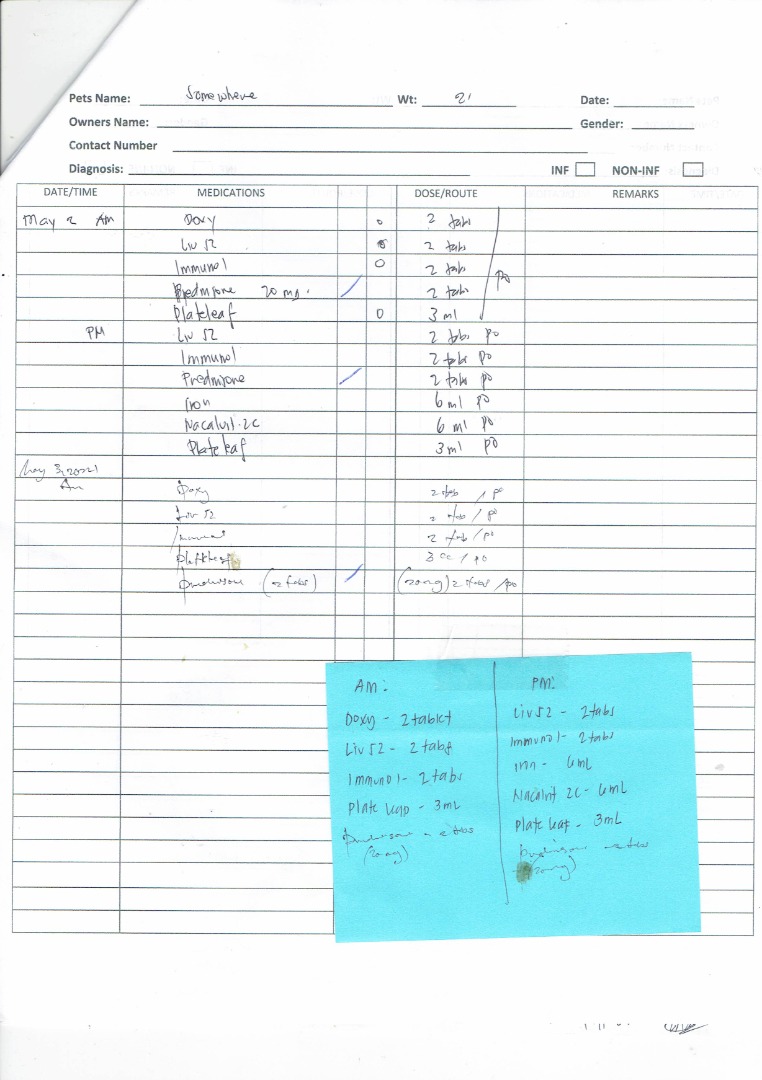 Pets Name: Somewhere Wt: 21 Date:
Owners Name: Gender:
Contact Number
Diagnosis: INF NON-INF
DATE/TIME MEDICATIONS DOSE/ROUTE REMARKS
May 2 AM Doxy 2 tabs
Liv 52 2 tabs
Immunol 2 tabs po
Prednisone 20 mg. 2 tabs
Plateleaf 3 ml
PM Liv 52 2 tabs po
Immunol 2 tabs po
Prednisone 2 tabs po
Iron 6 ml po
Nacalvit-2C 6 ml po
Plateleaf 3 ml po
May 3, 2021
AM Doxy 2 tab / po
Liv 52 2 tab / po
Immunol 2 tab / po
Plateleaf 3 cc / po
Prednisone (2 tabs) (20mg) 2 tabs / po
AM:
Doxy - 2 tablet
Liv 52 - 2 tabs
Immunol - 2 tabs
Plate leap - 3mL
Prednisone - 2 tabs
(20mg)
PM:
Liv 52 - 2 tabs
Immunol - 2 tabs
Iron - 6mL
Nacalvit 2C - 6mL
Plate leaf - 3mL
Prednisone - 2 tabs
(20mg)